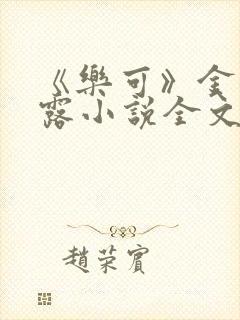 《樂可》金
露小説全文
趙荣賓